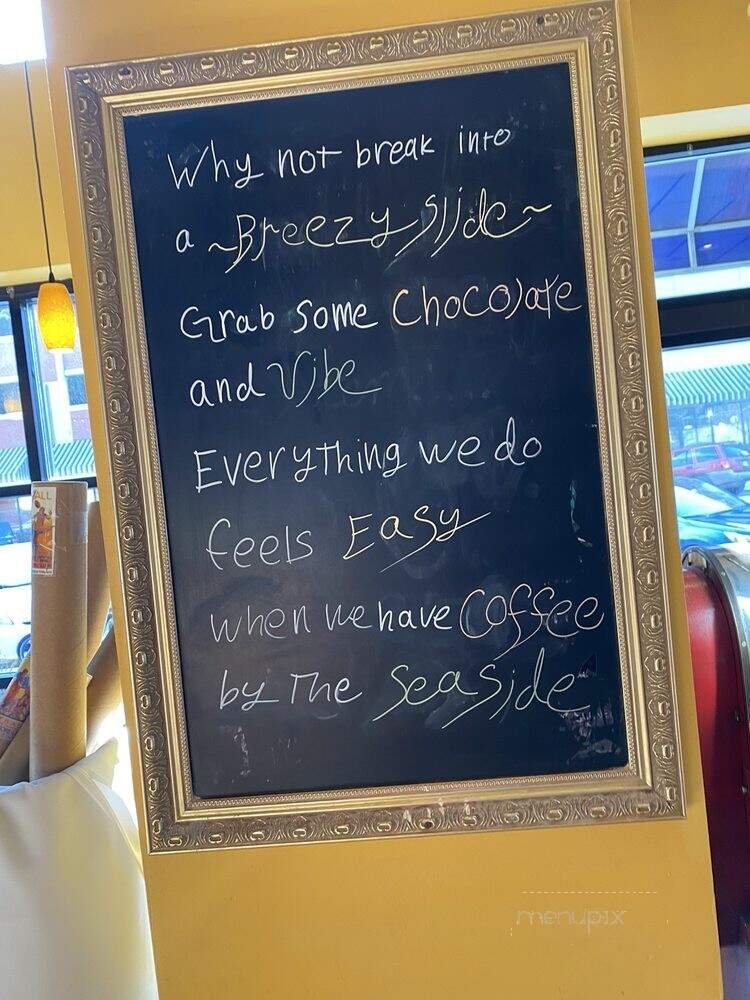 Why not break into
a ~Breezy slide~
Grab some Chocolate
and Vibe
Everything we do
feels Easy
when we have Coffee
by The Seaside
ALL
menupix